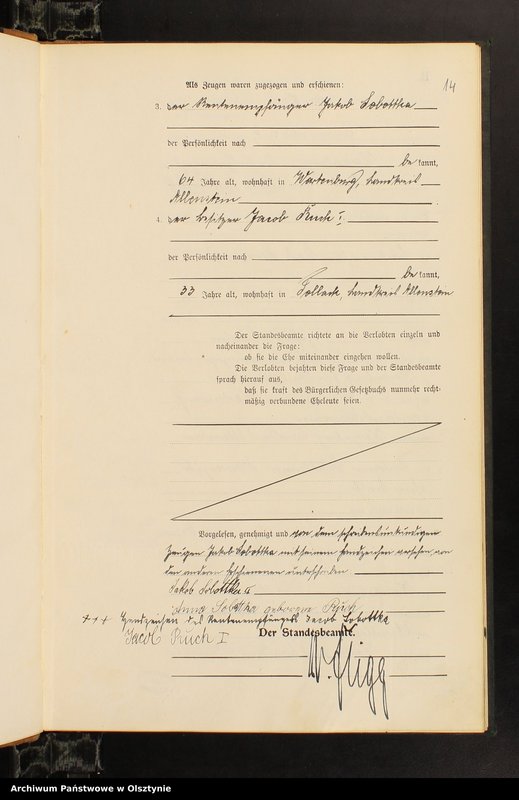 14
Als Zeugen waren zugezogen und erschienen:
3. der Rentenempfänger Jakob Sobottka
der Persönlichkeit nach
be kannt,
64 Jahre alt, wohnhaft in Wartenburg, Landkreis
Allenstein
4. der Besitzer Jacob Ruch I.
der Persönlichkeit nach
be kannt,
33 Jahre alt, wohnhaft in Tollack, Landkreis Allenstein
Der Standesbeamte richtete an die Verlobten einzeln und
nacheinander die Frage:
ob sie die Ehe miteinander eingehen wollen.
Die Verlobten bejahten diese Frage und der Standesbeamte
sprach hierauf aus,
daß sie kraft des Bürgerlichen Gesetzbuchs nunmehr recht-
mäßig verbundene Eheleute seien.
Vorgelesen, genehmigt und von dem schreibensunkundigen
Zeugen Jakob Sobottka mit seinem Handzeichen versehen von
den anderen Erschienenen unterschrieben
Jakob Sobottka
Anna Sobottka geborene Ruch
+++ Handzeichen des Rentenempfängers Jacob Sobottka
Jacob Ruch I
Der Standesbeamte.
Archiwum Państwowe w Olsztynie